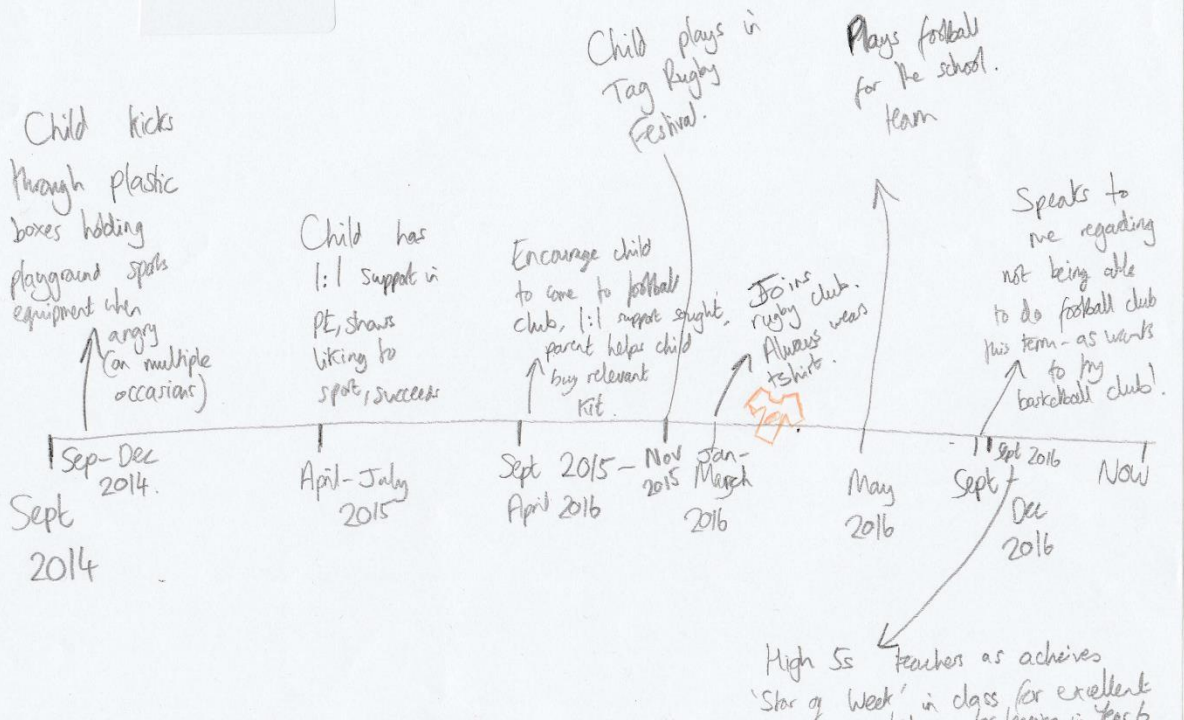 Child kicks
through plastic
boxes holding
playground sports
equipment when
angry
(on multiple
occasions)
Child has
1:1 support in
PE, shows
liking to
sport, succeeds
Encourage child
to come to football
club, 1:1 support sought,
parent helps child
buy relevant
kit.
Child plays in
Tag Rugby
Festival.
Joins
rugby club.
Always wears
tshirt.
Plays football
for the school.
team
Speaks to
me regarding
not being able
to do football club
this term - as wants
to try
basketball club!
Sept
2014
Sep-Dec
2014.
April-July
2015
Sept 2015 -
April 2016
Nov
2015
Jan-
March
2016
May
2016
Sept 2016
Sept -
Dec
2016
Now
High 5s teachers as acheives
'Star of Week' in class for excellent
in Year 6